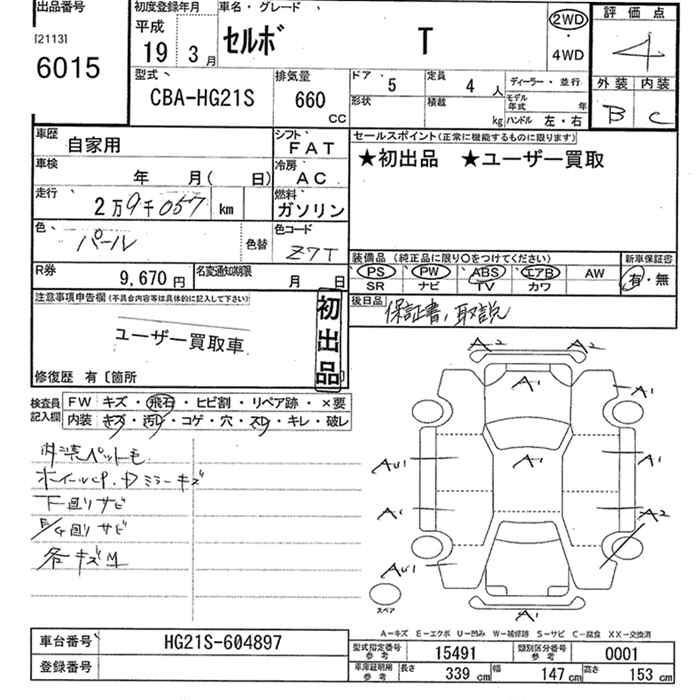 出品番号
[2113]
6015
初度登録年月
平成
19 3月
車名・グレード
セルボ T
2WD
4WD
評価点
4
外装 内装
B C
型式
CBA-HG21S
排気量
660 cc
ドア 5
定員 4人
形状
積載 kg
ディーラー・並行
モデル年式 年
ハンドル 左・右
車歴 自家用
シフト FAT
車検 年 月( 日)
冷房 AC
走行 2万9千057 km
燃料 ガソリン
色 パール 色替
色コード Z7T
R券 9,670円
名変通知期限 月 日
セールスポイント(正常に機能するものに限ります)
★初出品 ★ユーザー買取
装備品(純正品に限り○をつけてください)
PS PW ABS エアB AW
SR ナビ TV カワ
新車保証書
有・無
後日品 保証書、取説
注意事項申告欄(不具合内容等は具体的に記入して下さい)
ユーザー買取車
初出品
修復歴 有〔箇所 〕
検査員記入欄
FW キズ・飛石・ヒビ割・リペア跡・×要
内装 キズ・汚レ・コゲ・穴・スレ・キレ・破レ
内装ペット毛
ホイールCP.Dミラーキズ
下回りサビ
回りサビ
各キズM
A2 A2
A1
A1
AU1 A1 A1
A1 A2
AU1
A1
スペア
A-キズ E-エクボ U-凹み W-補修跡 S-サビ C-腐食 XX-交換済
車台番号 HG21S-604897
登録番号
型式指定番号 参考 15491
類別区分番号 参考 0001
車庫証明用 参考 長さ 339 cm 幅 147 cm 高さ 153 cm